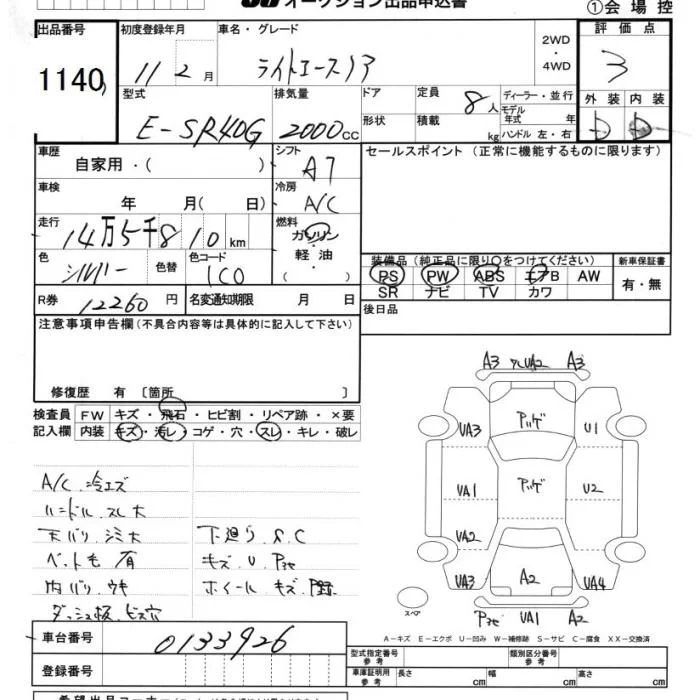 オークション出品申込書
①会場控
出品番号 初度登録年月 車名・グレード 2WD・4WD 評価点
1140 11 2月 ライトエースノア 3
型式 排気量 ドア 定員 8人 ディーラー・並行 外装 内装
E-SR40G 2000cc 形状 積載 kg モデル年式 年 ハンドル 左・右 D D
車歴 自家用・( ) シフト AT セールスポイント (正常に機能するものに限ります)
車検 年 月( 日) 冷房 A/C
走行 14万5千810km 燃料 ガソリン
軽油
( )
色 シルバー 色替 色コード 1C0
装備品(純正品に限り○をつけてください) 新車保証書
PS PW ABS エアB AW 有・無
SR ナビ TV カワ
R券 12260円 名変通知期限 月 日 後日品
注意事項申告欄(不具合内容等は具体的に記入して下さい)
修復歴 有 〔箇所 〕
検査員 FW キズ・飛石・ヒビ割・リペア跡・×要
記入欄 内装 キズ・汚レ・コゲ・穴・スレ・キレ・破レ
A/C 冷エズ
ハンドル スレ大
天バリ シミ大 下廻り S.C
ペット毛 有 キズ U
内バリ ウキ ホイール キズ
ダッシュ板 ビス穴
A3 UA2 A3
UA3 U1
UA1 U2
UA2
UA3 A2 UA4
UA1 A2
スペア
A-キズ E-エクボ U-凹み W-補修跡 S-サビ C-腐食 XX-交換済
車台番号 0133926
登録番号
型式指定番号 参考 類別区分番号 参考
車庫証明用 参考 長さ cm 幅 cm 高さ cm